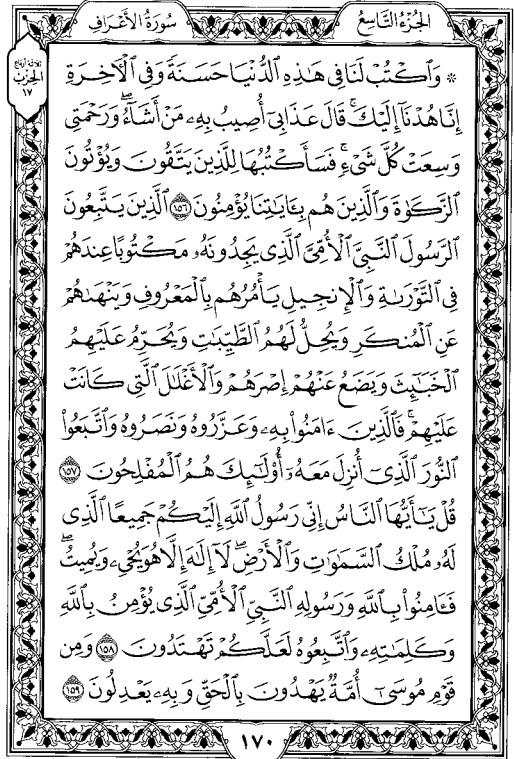 الجزء التاسع
سورة الأعراف
ثلاثة أرباع
الحزب
١٧
۞ وَٱكْتُبْ لَنَا فِى هَـٰذِهِ ٱلدُّنْيَا حَسَنَةً وَفِى ٱلْـَٔاخِرَةِ
إِنَّا هُدْنَآ إِلَيْكَ ۚ قَالَ عَذَابِىٓ أُصِيبُ بِهِۦ مَنْ أَشَآءُ ۖ وَرَحْمَتِى
وَسِعَتْ كُلَّ شَىْءٍ ۚ فَسَأَكْتُبُهَا لِلَّذِينَ يَتَّقُونَ وَيُؤْتُونَ
ٱلزَّكَوٰةَ وَٱلَّذِينَ هُم بِـَٔايَـٰتِنَا يُؤْمِنُونَ ١٥٦ ٱلَّذِينَ يَتَّبِعُونَ
ٱلرَّسُولَ ٱلنَّبِىَّ ٱلْأُمِّىَّ ٱلَّذِى يَجِدُونَهُۥ مَكْتُوبًا عِندَهُمْ
فِى ٱلتَّوْرَىٰةِ وَٱلْإِنجِيلِ يَأْمُرُهُم بِٱلْمَعْرُوفِ وَيَنْهَىٰهُمْ
عَنِ ٱلْمُنكَرِ وَيُحِلُّ لَهُمُ ٱلطَّيِّبَـٰتِ وَيُحَرِّمُ عَلَيْهِمُ
ٱلْخَبَـٰٓئِثَ وَيَضَعُ عَنْهُمْ إِصْرَهُمْ وَٱلْأَغْلَـٰلَ ٱلَّتِى كَانَتْ
عَلَيْهِمْ ۚ فَٱلَّذِينَ ءَامَنُوا۟ بِهِۦ وَعَزَّرُوهُ وَنَصَرُوهُ وَٱتَّبَعُوا۟
ٱلنُّورَ ٱلَّذِىٓ أُنزِلَ مَعَهُۥٓ ۙ أُو۟لَـٰٓئِكَ هُمُ ٱلْمُفْلِحُونَ ١٥٧
قُلْ يَـٰٓأَيُّهَا ٱلنَّاسُ إِنِّى رَسُولُ ٱللَّهِ إِلَيْكُمْ جَمِيعًا ٱلَّذِى
لَهُۥ مُلْكُ ٱلسَّمَـٰوَٰتِ وَٱلْأَرْضِ ۖ لَآ إِلَـٰهَ إِلَّا هُوَ يُحْىِۦ وَيُمِيتُ ۖ
فَـَٔامِنُوا۟ بِٱللَّهِ وَرَسُولِهِ ٱلنَّبِىِّ ٱلْأُمِّىِّ ٱلَّذِى يُؤْمِنُ بِٱللَّهِ
وَكَلِمَـٰتِهِۦ وَٱتَّبِعُوهُ لَعَلَّكُمْ تَهْتَدُونَ ١٥٨ وَمِن
قَوْمِ مُوسَىٰٓ أُمَّةٌ يَهْدُونَ بِٱلْحَقِّ وَبِهِۦ يَعْدِلُونَ ١٥٩
١٧٠